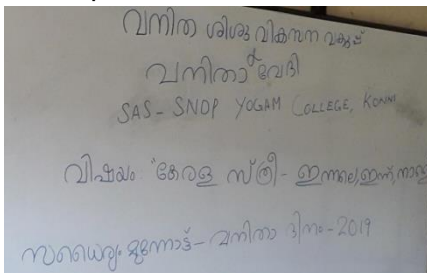 വനിത ശിശു വികസന വകുപ്പ്
&
വനിതാ വേദി
SAS - SNDP YOGAM COLLEGE, KONNI
വിഷയം: "കേരള സ്ത്രീ - ഇന്നലെ, ഇന്ന്, നാളെ
സധൈര്യം മുന്നോട്ട് - വനിതാ ദിനം - 2019